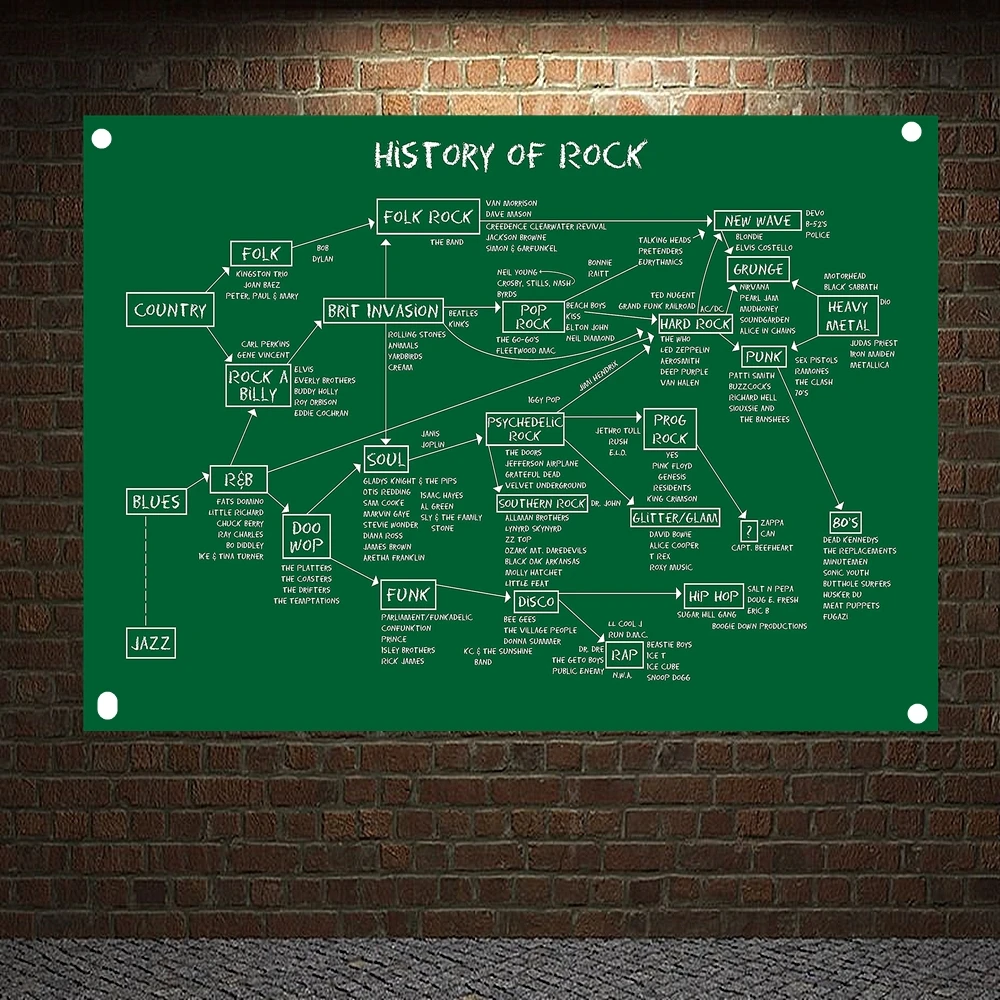 HISTORY OF ROCK
FOLK ROCK
VAN MORRISON
DAVE MASON
CREEDENCE CLEARWATER REVIVAL
JACKSON BROWNE
SIMON & GARFUNKEL
THE BAND
NEW WAVE
DEVO
B-52'S
POLICE
BLONDIE
ELVIS COSTELLO
TALKING HEADS
PRETENDERS
EURYTHMICS
FOLK
BOB
DYLAN
KINGSTON TRIO
JOAN BAEZ
PETER, PAUL & MARY
BONNIE
RAITT
GRUNGE
NIRVANA
PEARL JAM
MUDHONEY
SOUNDGARDEN
ALICE IN CHAINS
MOTORHEAD
BLACK SABBATH
COUNTRY
BRIT INVASION
BEATLES
KINK'S
ROLLING STONES
ANIMALS
YARDBIRDS
CREAM
NEIL YOUNG
CROSBY, STILLS, NASH
BYRDS
POP
ROCK
BEACH BOYS
KISS
ELTON JOHN
NEIL DIAMOND
THE GO-GO'S
FLEETWOOD MAC
TED NUGENT
GRAND FUNK RAILROAD
AC/DC
HARD ROCK
THE WHO
LED ZEPPELIN
AEROSMITH
DEEP PURPLE
VAN HALEN
HEAVY
METAL
DIO
JUDAS PRIEST
IRON MAIDEN
METALLICA
CARL PERKINS
GENE VINCENT
ROCK A
BILLY
ELVIS
EVERLY BROTHERS
BUDDY HOLLY
ROY ORBISON
EDDIE COCHRAN
PUNK
SEX PISTOLS
RAMONES
THE CLASH
70'S
PATTI SMITH
BUZZCOCK'S
RICHARD HELL
SIOUXSIE AND
THE BANSHEES
JIMI HENDRIX
IGGY POP
PSYCHEDELIC
ROCK
THE DOORS
JEFFERSON AIRPLANE
GRATEFUL DEAD
VELVET UNDERGROUND
JETHRO TULL
RUSH
E.L.O.
PROG
ROCK
YES
PINK FLOYD
GENESIS
RESIDENTS
KING CRIMSON
JANIS
JOPLIN
SOUL
GLADYS KNIGHT & THE PIPS
OTIS REDDING
SAM COOKE
MARVIN GAYE
STEVIE WONDER
DIANA ROSS
JAMES BROWN
ARETHA FRANKLIN
ISAAC HAYES
AL GREEN
SLY & THE FAMILY
STONE
R&B
FATS DOMINO
LITTLE RICHARD
CHUCK BERRY
RAY CHARLES
BO DIDDLEY
IKE & TINA TURNER
BLUES
DOO
WOP
THE PLATTERS
THE COASTERS
THE DRIFTERS
THE TEMPTATIONS
SOUTHERN ROCK
DR. JOHN
ALLMAN BROTHERS
LYNYRD SKYNYRD
ZZ TOP
OZARK MT. DAREDEVILS
BLACK OAK ARKANSAS
MOLLY HATCHET
LITTLE FEAT
GLITTER/GLAM
DAVID BOWIE
ALICE COOPER
T REX
ROXY MUSIC
?
ZAPPA
CAN
CAPT. BEEFHEART
80'S
DEAD KENNEDYS
THE REPLACEMENTS
MINUTEMEN
SONIC YOUTH
BUTTHOLE SURFERS
HUSKER DU
MEAT PUPPETS
FUGAZI
FUNK
PARLIAMENT/FUNKADELIC
CONFUNKTION
PRINCE
ISLEY BROTHERS
RICK JAMES
DISCO
BEE GEES
THE VILLAGE PEOPLE
DONNA SUMMER
KC & THE SUNSHINE
BAND
HIP HOP
SALT N PEPA
DOUG E. FRESH
ERIC B
SUGAR HILL GANG
BOOGIE DOWN PRODUCTIONS
JAZZ
LL COOL J
RUN D.M.C.
DR. DRE
THE GETO BOYS
PUBLIC ENEMY
RAP
BEASTIE BOYS
ICE T
ICE CUBE
SNOOP DOGG
N.W.A.